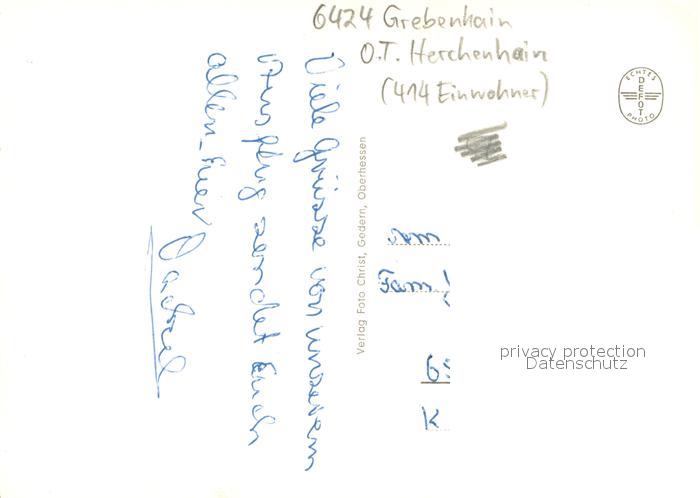 6424 Grebenhain
O.T. Herchenhain
(414 Einwohner)
ECHTES
DEFOT
PHOTO
Viele Grüsse von unserem
Ausflug sendet Euch
allen Euer
Verlag Foto Christ, Gedern, Oberhessen
Fam
privacy protection
Datenschutz